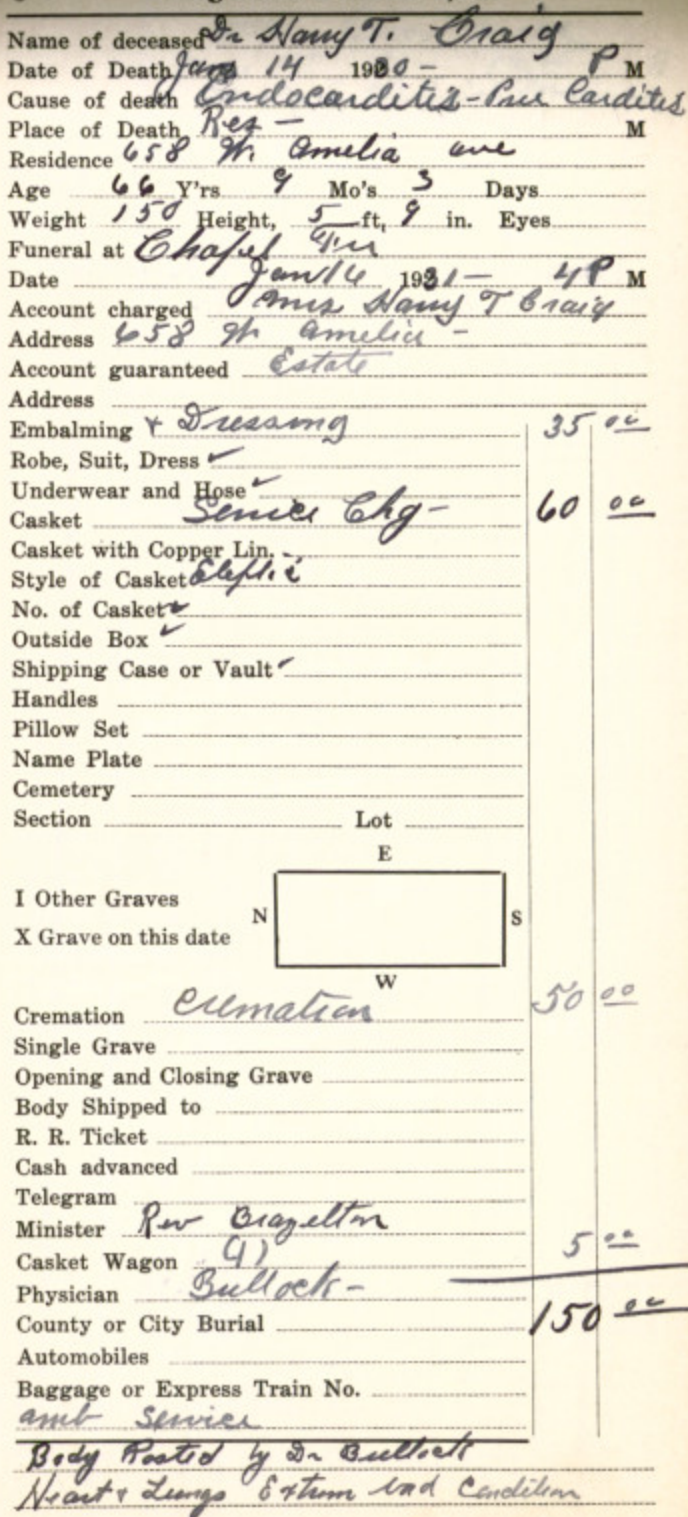 Name of deceased Dr Harry T. Craig
Date of Death Jan 14 1930 - P M
Cause of death Endocarditis - Carditis
Place of Death Res - M
Residence 658 W. Amelia ave
Age 66 Y'rs 9 Mo's 3 Days
Weight 150 Height, 5 ft, 9 in. Eyes
Funeral at Chapel
Date Jan 16 1931 - 4 P M
Account charged Mrs Harry T Craig
Address 658 W Amelia -
Account guaranteed Estate
Address
Embalming & Dressing 35 00
Robe, Suit, Dress ✓
Underwear and Hose ✓
Casket Service Chg - 60 00
Casket with Copper Lin.
Style of Casket
No. of Casket ✓
Outside Box ✓
Shipping Case or Vault ✓
Handles
Pillow Set
Name Plate
Cemetery
Section Lot
E
I Other Graves
N S
X Grave on this date
W
Cremation Cremation 50 00
Single Grave
Opening and Closing Grave
Body Shipped to
R. R. Ticket
Cash advanced
Telegram
Minister Rev Brazelton
Casket Wagon 5 00
Physician Bullock -
County or City Burial 150 00
Automobiles
Baggage or Express Train No.
amb Service
Body Posted by Dr Bullock
Heart & Lungs Extrem bad Condition